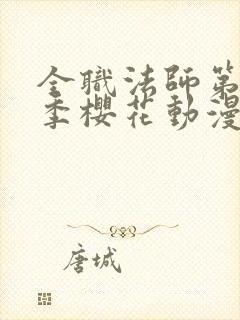 全職法師第
季櫻花動漫
唐城